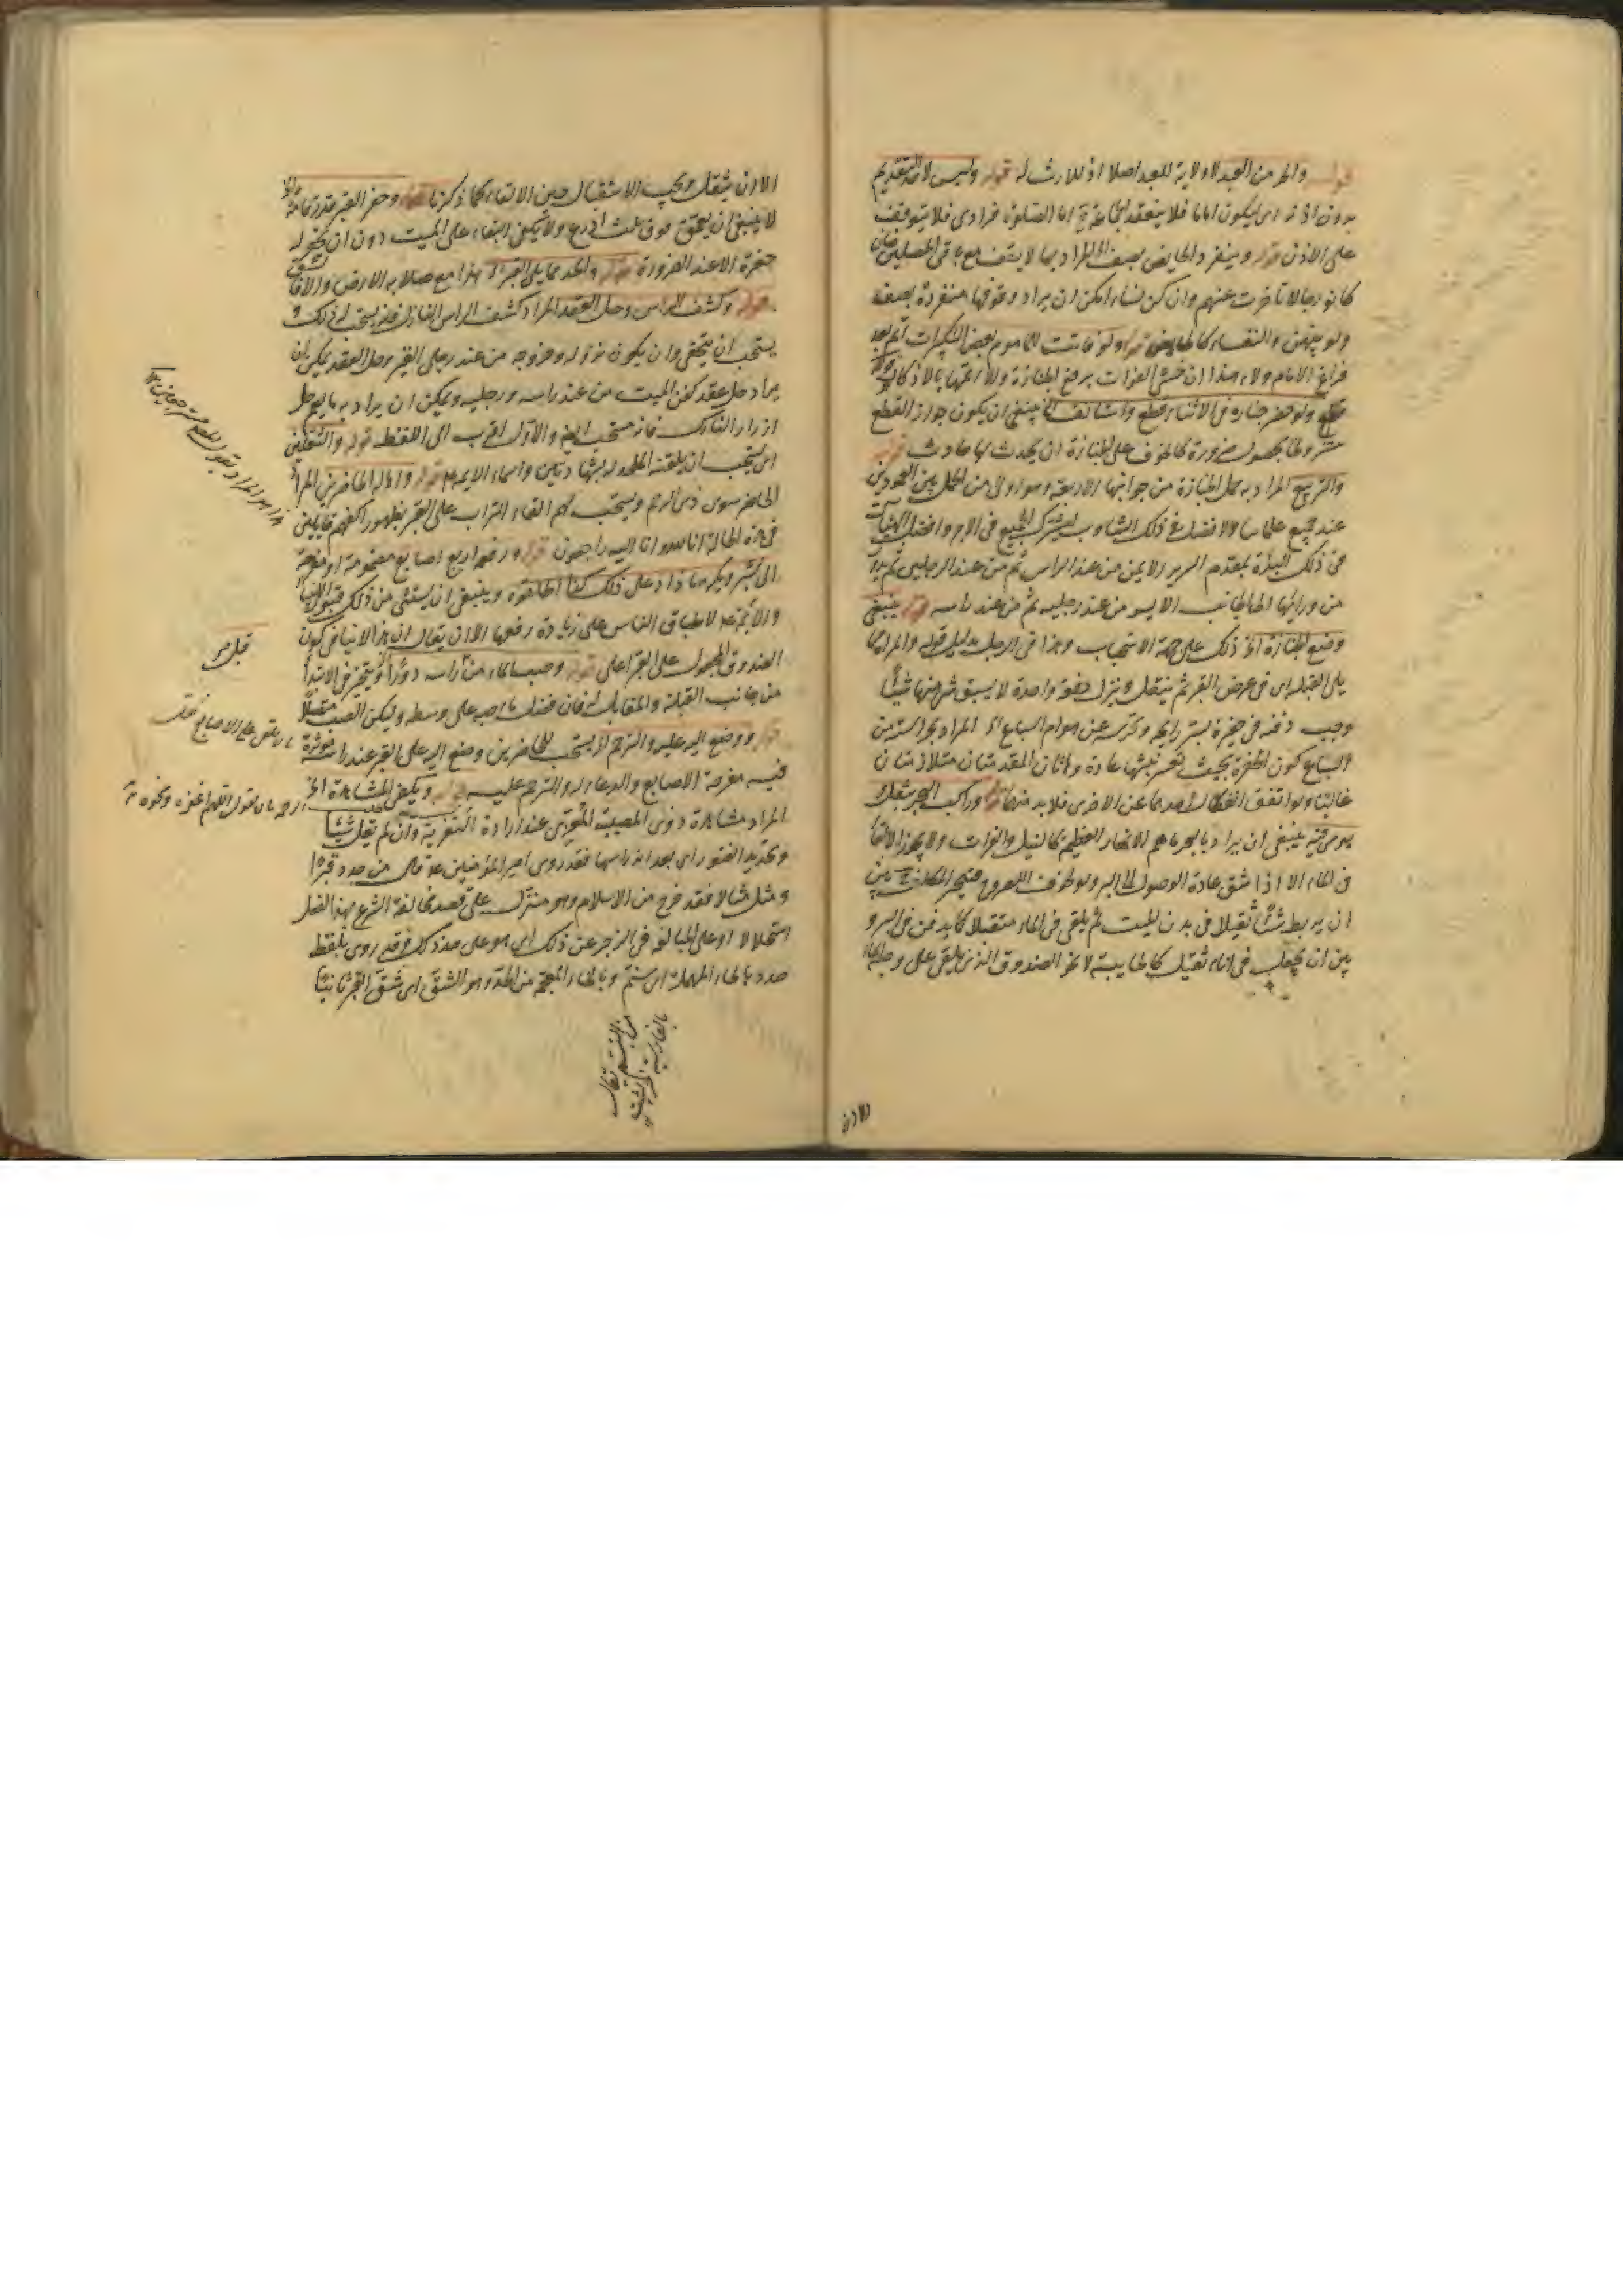 قوله والحر من العبد لا ولاية للعبد اصلا اذ لا ارث له قوله وليس لاحد التقديم
بدون اذنه اى ليكون اماما فلا ينعقد الجماعة اما الصلوة فرادى فلا يتوقف
على الاذن قوله وينفرد الحايض بصف المراد بها لا يقف مع باقى المصلين فان
كانوا رجالا تاخرت عنهم وان كن نساء امكن ان يراد وقوفها منفردة بصف
ولو بينهن والنفساء كالحايض قوله ولو فاتت الماموم بعض التكبيرات اتم بعد
فراغ الامام ولاء هذا ان خشى الفوات برفع الجنازة والا اتمها بالاذكار قوله
ولو حضر جنازه فى الاثناء قطع واستانف الخ ينبغى ان يكون جواز القطع
مشروطا بحصول ضرورة كالخوف على الجنازة ان يحدث بها حادث قوله
والتربيع المراد به حمل الجنازة من جوانبها الاربعة وهو اولى من الحمل بين العمودين
عند جميع علمائنا والافضل فى ذلك التناوب ليشترك الجميع فى الاجر وافضل الهيئات
فى ذلك البداة بمقدم السرير الايمن من عند الراس ثم من عند الرجلين ثم يدور
من ورائها الى الجانب الايسر من عند رجليه ثم من عند راسه قوله ينبغى
وضع الجنازة الخ ذلك على جهة الاستحباب وهذا فى الرجل بدليل قوله والمراة مما
يلى القبلة اى فى عرض القبر ثم ينقل وينزل دفعة واحدة لا يسبق شىء منها شيئا
وجب دفنه فى حفرة تستر رايحته وتحرسه عن هوام السباع الخ المراد بحراسته من
السباع كون الحفرة بحيث يعسر نبشها عادة وهاتان المقدمتان متلازمتان
غالبا ولو اتفق انفكاك احدهما عن الاخرى فلا بد منهما قوله وراكب البحر يثقل
يرمى فيه ينبغى ان يراد بالبحر ما يعم الانهار العظيمة كالنيل والفرات ولا يجوز الالقاء
فى الماء الا اذا شق عادة الوصول الى البر
ان يربط شيئا ثقيلا فى بدن الميت ثم يلقى فى الماء مستقبلا كما يدفن فى البر و
بين ان يجعل فى اناء ثقيل كالخابية لا نحو الصندوق الذى يبقى على وجه الماء
الا ان
الا ان يثقل ويجب الاستقبال حين الالقاء كما ذكرنا قوله وحفر القبر قدر قامة الخ
لا ينبغى ان يعمق فوق ثلث اذرع ولا يكفى البناء على الميت دون ان يحفر له
حفرة الا عند الضرورة قوله واللحد مما يلى القبلة هذا مع صلابة الارض والا فالشق
قوله وكشف الراس وحل العقد المراد كشف الراس النازل فانه يستحب له ذلك و
يستحب ان يتحفى وان يكون نزوله وخروجه من عند رجلى القبر وحل العقد يمكن ان
يراد حل عقد كفن الميت من عند راسه ورجليه ويمكن ان يراد به ما يعم حل
ازرار النازل فانه مستحب ايضا والاول اقرب الى اللفظ قوله والتلقين
اى يستحب ان يلقنه الملحد له الشهادتين واسماء الائمة قوله واهالة الحاضرين المراد
الحاضر سوى ذى الرحم ويستحب لهم القاء التراب على القبر بظهور اكفهم قايلين
فى هذه الحالة انا لله وانا اليه راجعون قوله ورفعه اربع اصابع مضمومة او مفرجة
الى شبر ويكره ما زاد على ذلك كذا اطلقوه وينبغى ان يستثنى من ذلك قبور الانبياء
والائمة ع لاطباق الناس على زيادة رفعها الا ان يقال ان هذا لا ينافى كون
الصندوق المجعول على القبر اعلى قوله وصب الماء من راسه دورا ويتخير فى الابتداء
من جانب القبلة والمقابل له فان فضل ماء صبه على وسطه وليكن الصب متصلا
قوله ووضع اليد عليه والترحم الخ يستحب للحاضرين وضع اليد على القبر عند راسه موثرة
فيه مفرجة الاصابع والدعاء له والترحم عليه قوله ويكفى المشاهدة الخ
المراد مشاهدة ذوى المصيبة المعزى عند ارادة التعزية وان لم تقل شيئا
وتجديد القبور اى بعد اندراسها فقد روى امير المؤمنين ع قال من حدد قبرا
ومثل مثالا فقد خرج من الاسلام وهو منزل على قصد مخالفة الشرع بهذا الفعل
استحلالا او على المبالغة فى الزجر عن ذلك اى هو على حد ذلك وقد روى بلفظ
حدد بالحاء المهملة اى سنم وبالخاء المعجمة من الخد وهو الشق اى شق القبر ثانيا